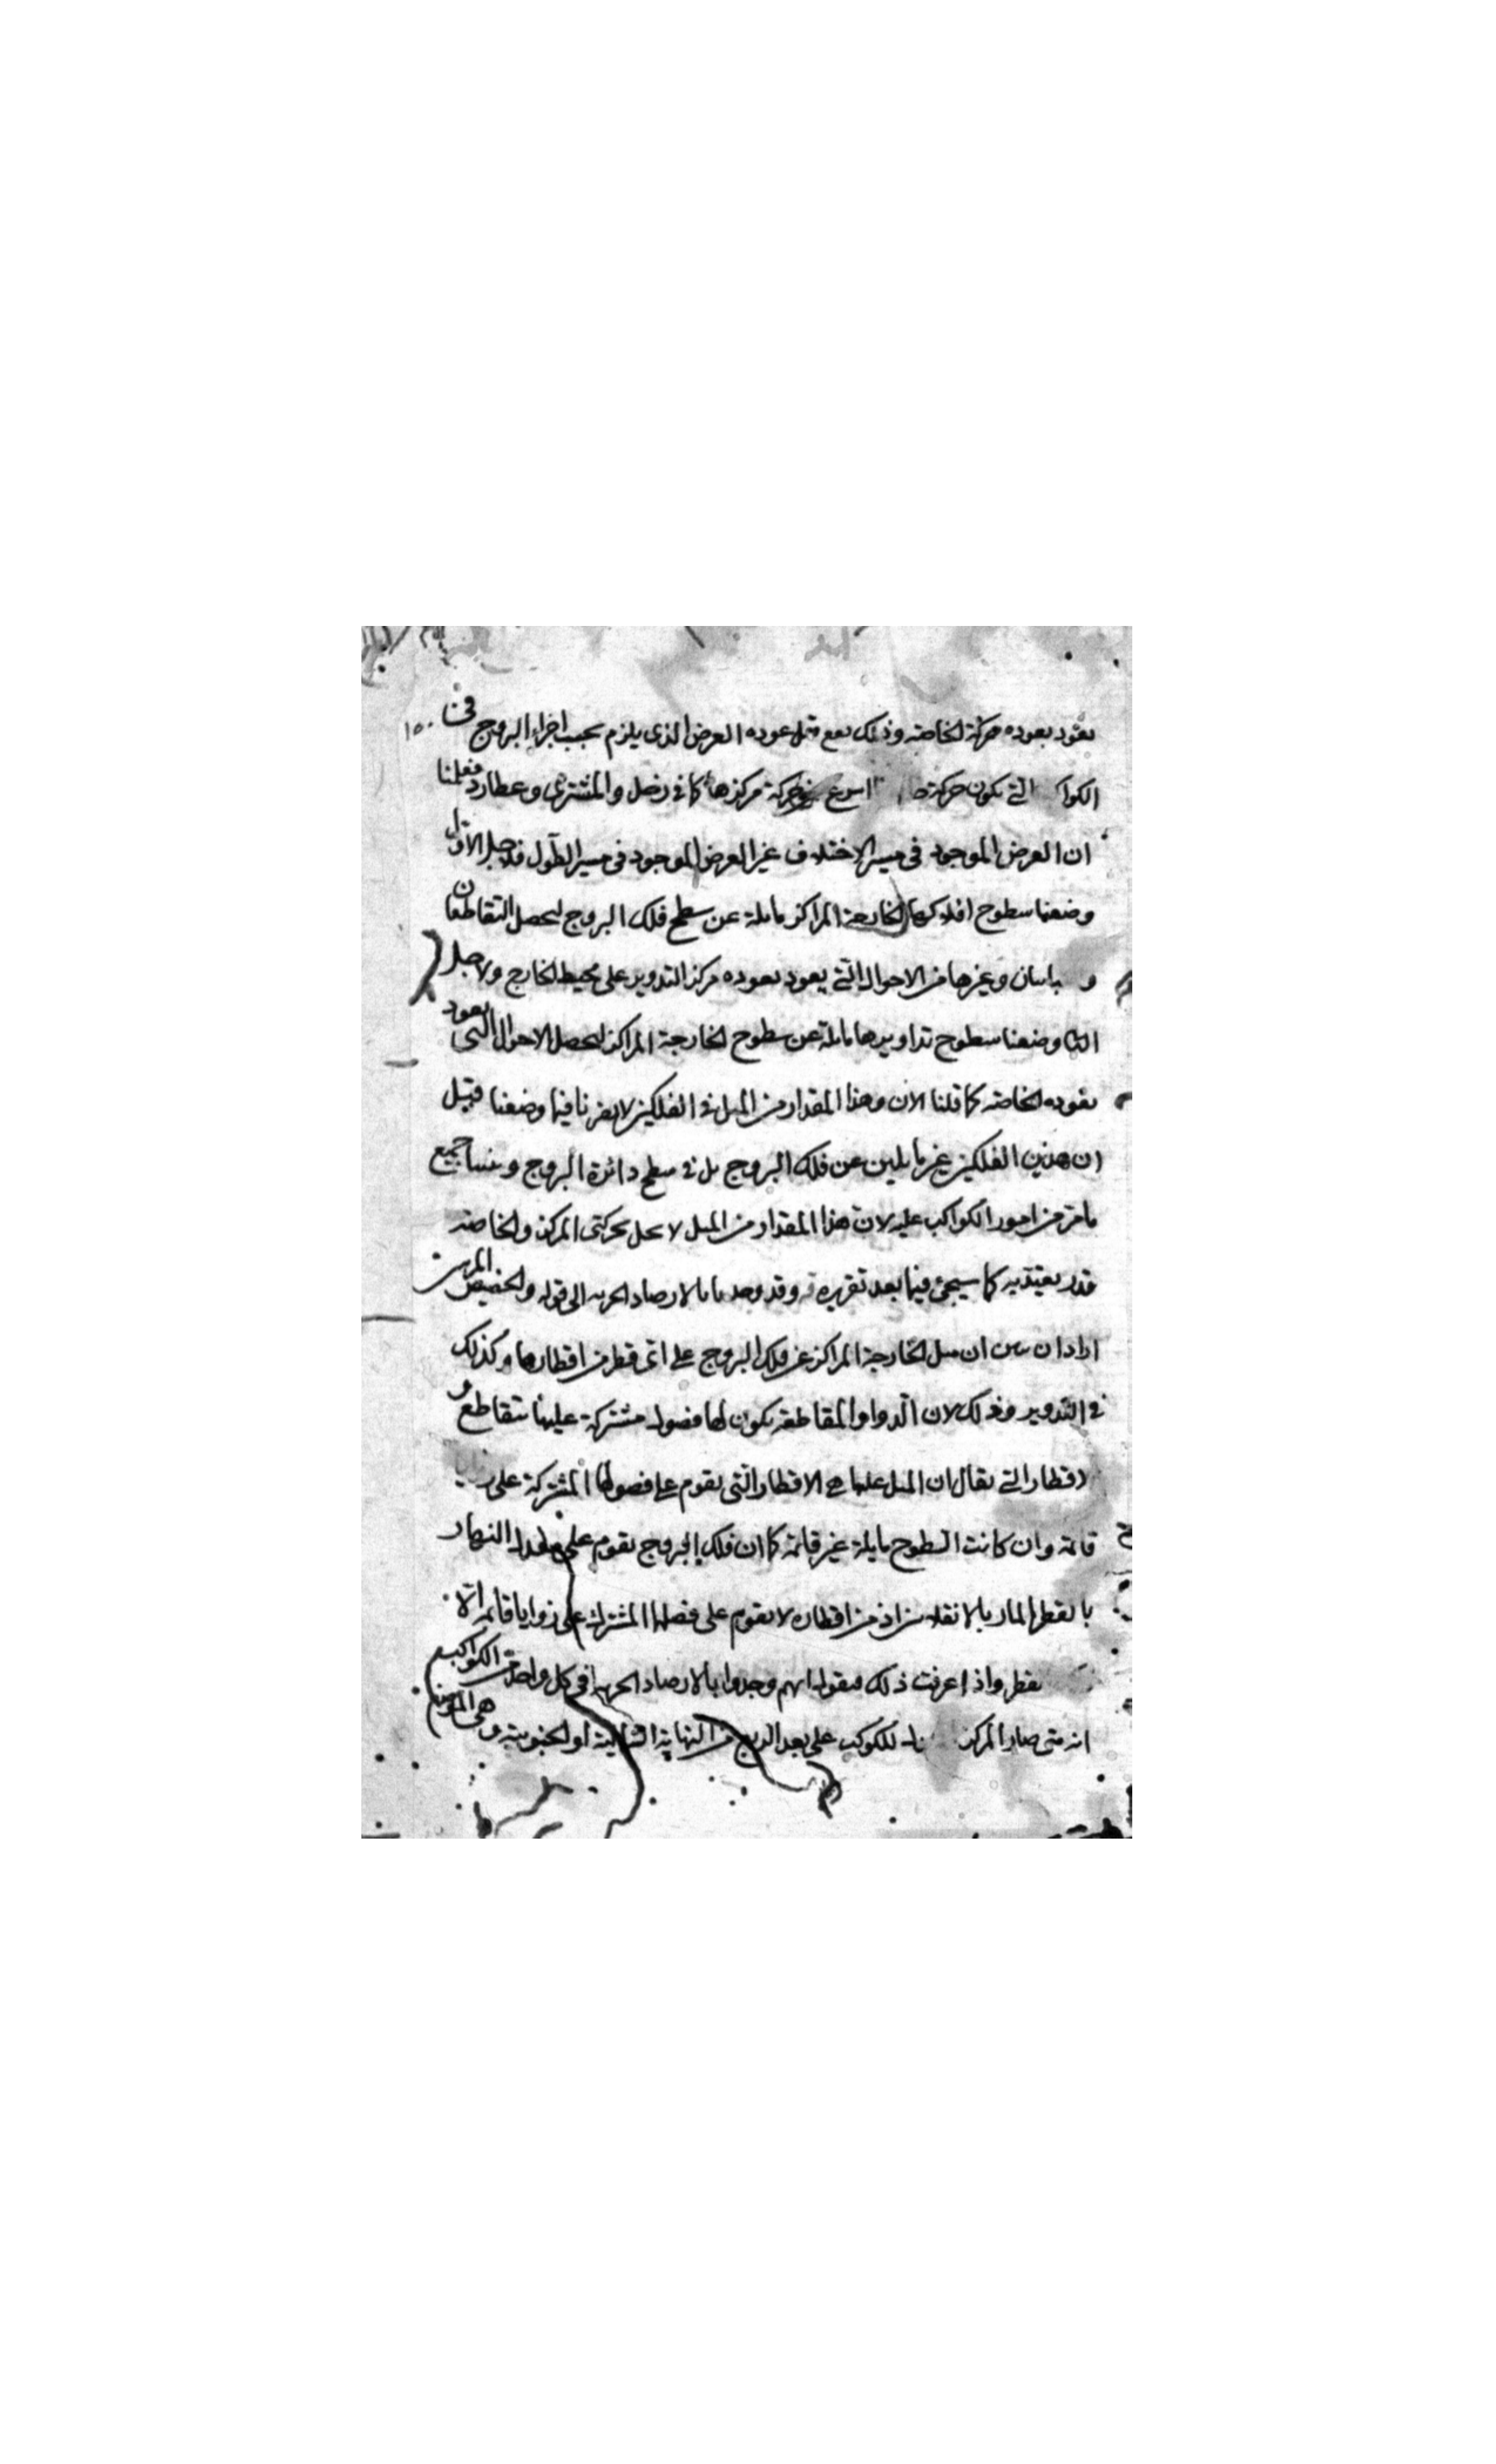 يعود بعوده حركة الخاصه وذلك يقع قبل عوده العرض الذى يلزم بحسب اجزاء البروج فى ١٥٠
الكواكب التى يكون حركة اسرع من حركة مركزها كما فى زحل والمشترى وعطارد فعلمنا
ان العرض الموجود فى مسير الاختلاف غير العرض الموجود فى مسير الطول فلاجل الاول
وضعنا سطوح افلاكها الخارجة المراكز مايلة عن سطح فلك البروج ليحصل التقاطعان
و وغيرها من الاحوال التى يعود بعوده مركز التدوير على محيط الخارج ولاجل
الثانى وضعنا سطوح تداويرها مايلة عن سطوح الخارجة المراكز ليحصل الاحوال التى يعود
بعوده الخاصه كما قلنا الان وهذا المقدار من الميل فى الفلكين لا يضرنا فيما وضعنا قبل
ان هذين الفلكين غير مايلين عن فلك البروج بل فى سطح دائرة البروج وبنينا جميع
ما مر من امور الكواكب عليه لان هذا المقدار من الميل لا يخل بحركتى المركز والخاصه
قدر يعتد به كما سيجئ فيما بعد تقريره وقد وجدنا بالارصاد الجزيه الى قوله والحضيض المريين
اراد ان يبين ان ميل الخارجة المراكز عن فلك البروج على اى قطر من اقطارها وكذلك
فى التدوير وذلك لان الدواير المقاطعه يكون لها فصول مشتركة عليها يتقاطع و
لاقطار التى يقال ان الميل عليها هى الاقطار التى يقوم على فصولها المشتركة على زوايا
قائمة وان كانت السطوح مايلة غير قائمة كما ان فلك البروج يقوم على معدل النهار
بالقطر المار بالانقلابين اذ من اقطاره لا يقوم على فصلها المشترك على زوايا قائمه الا
بقطر واذا عرفت ذلك فيقول انهم وجدوا بالارصاد الجزيه فى كل واحد من الكواكب
انه متى صار المركز للكوكب على بعد الربع من النهاية الشمالية او الجنوبية وهى المو